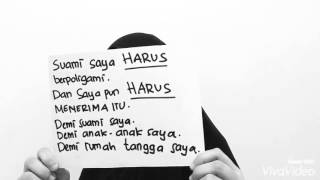 Suami saya HARUS
berpoligami.
Dan saya pun HARUS
MENERIMA ITU.
Demi suami saya.
Demi anak-anak saya.
Demi rumah tangga saya.
VivaVideo